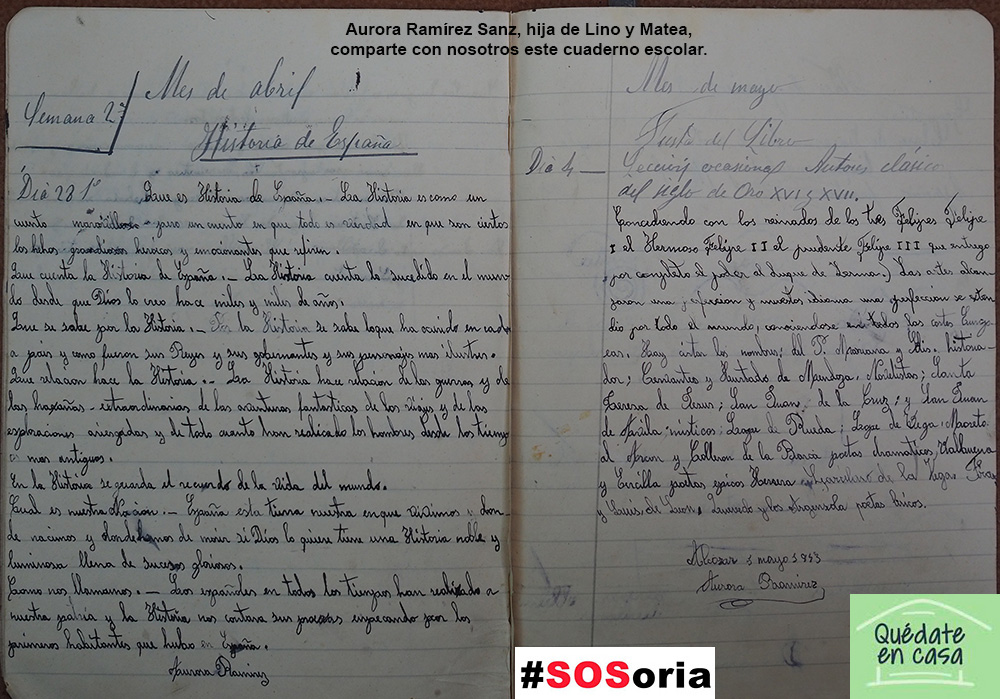 Aurora Ramírez Sanz, hija de Lino y Matea,
comparte con nosotros este cuaderno escolar.
Semana 2ª
Mes de abril
Historia de España
Día 28 1º Que es Historia de España. - La Historia es como un
cuento maravilloso - pero un cuento en que todo es verdad en que son ciertos
los hehos grandiosos heroicos y emocionantes que refieren.
Que cuenta la Historia de España. - La Historia cuenta lo sucedido en el mun
do desde que Dios lo creo hace miles y miles de años.
Que se sabe por la Historia. - Por la Historia se sabe loque ha ocurrido en cad
a pais y como fueron sus Reyes y sus gobernantes y sus personajes mas ilustres.
Que relacion hace la Historia. - La Historia hace relacion de las guerras y de
las hazañas - extraordinarias de las aventuras fantasticas de los viajes y de las
exploraciones arriesgadas y de todo cuanto han realizado los hombres desde los tiemp
os mas antiguos.
En la Historia se guarda el recuerdo de la vida del mundo.
Cual es nuestra Nacion. - España esta tierra nuestra enque vivimos y don-
de nacimos y dondehemos de morir si Dios lo quiere tiene una Historia noble y
luminosa llena de sucesos gloriosos.
Como nos llamamos. - Los españoles en todos los tiempos han realizado a
nuestra patria y la Historia nos contara sus proezas empezando por los
primeros habitantes que hubo en España.
Aurora Ramirez
Mes de mayo
Fiesta del Libro
Día 4 - Lección ocasional Autores clásico
del siglo de Oro XVI y XVII.
Concidiendo con los reinados de los tres Felipes Felipe
I el Hermoso Felipe II el prudente Felipe III que entrego
por completo el poder al duque de Lerma) Las artes alcan
zaron una perfeccion y nuestro idioma una perfeccion se exten
dio por todo el mundo, conociendose en todas las cortes Europ
eas. Hay citar los nombres; del P. Mariana y historia-
dor; Cervantes y Hurtado de Mendoza, Novelistas; Santa
Teresa de Jesus; San Juan de la Cruz; y San Juan
de Avila; misticos; Lope de Rueda; Lope de Vega, Moreto
al Arcon y Calderon de la Barca poetas dramaticos, Valbuena
y Ercilla poetas epicos Herrera Garcilaso de la Vega
y Luis de Leon, Quevedo y los Argensola poetas liricos.
Alcozar 5 mayo 1953
Aurora Ramirez
#SOSoria
Quédate
en casa